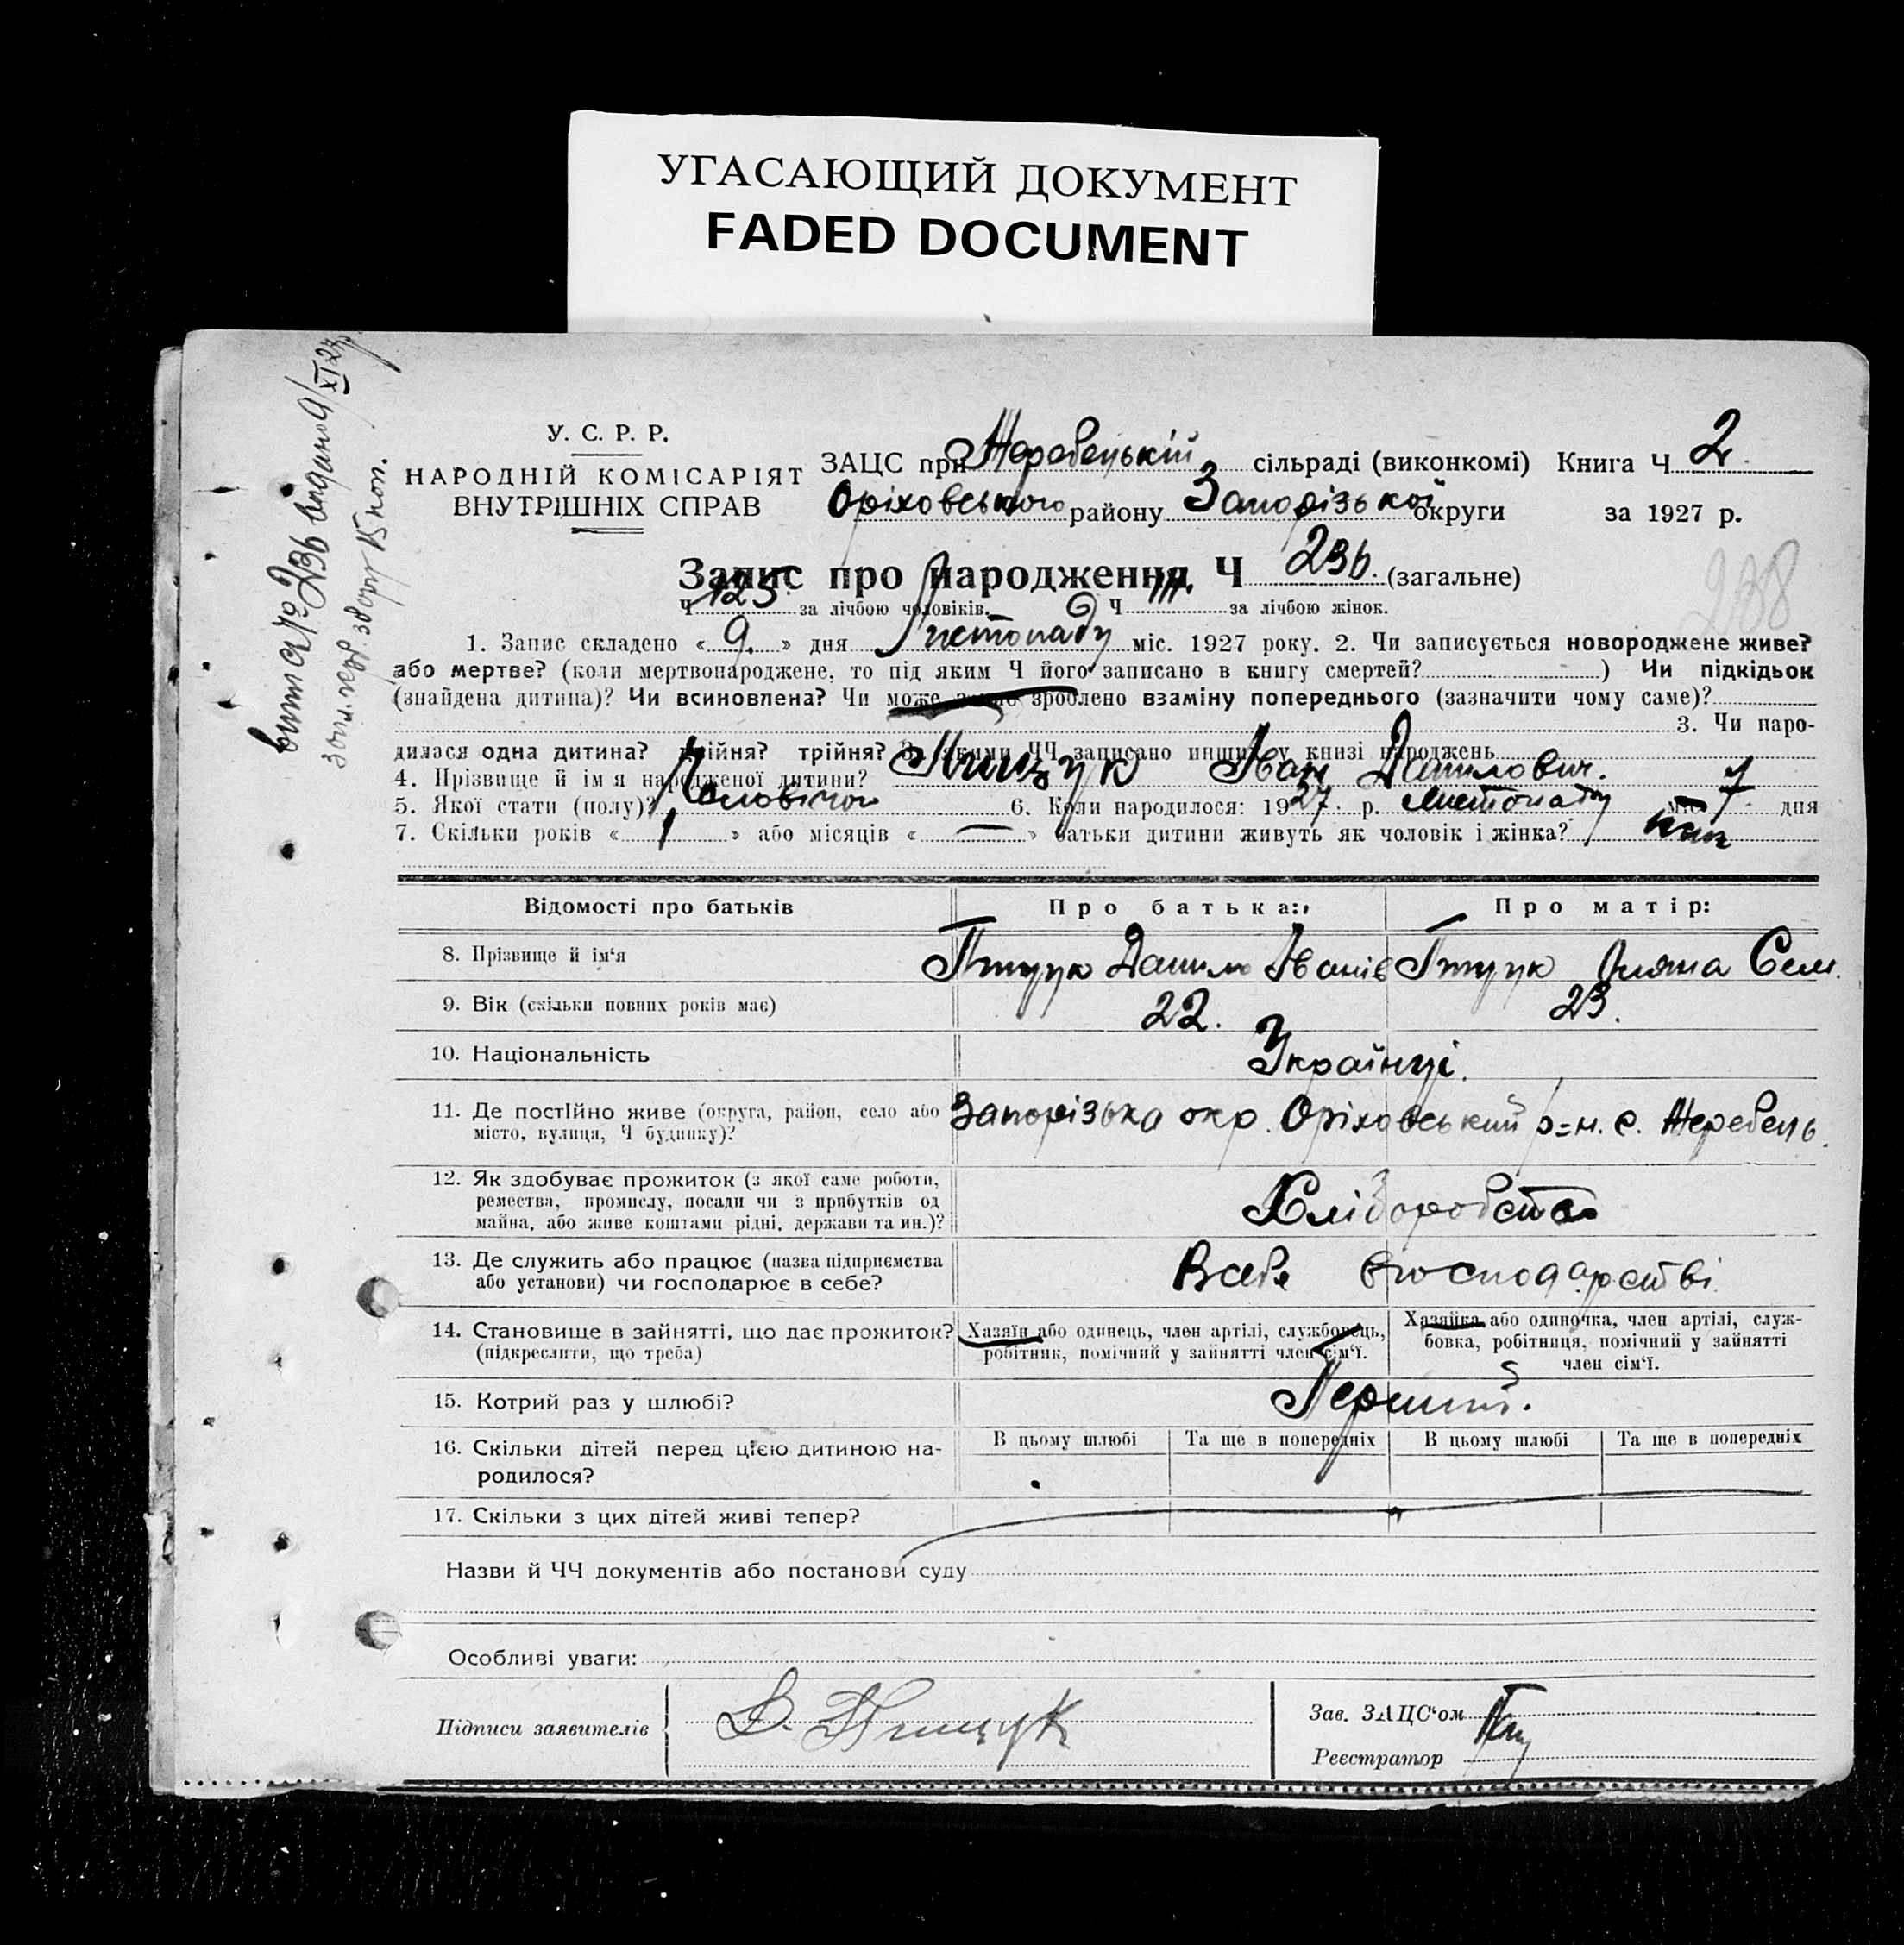 УГАСАЮЩИЙ ДОКУМЕНТ
FADED DOCUMENT
Витяг 236 видано 9/XI 27
15 коп.
У. С. Р. Р.
НАРОДНІЙ КОМІСАРІЯТ
ВНУТРІШНІХ СПРАВ
ЗАЦС при Жеребецькій сільраді (виконкомі) Книга Ч 2.
Оріховського району Запорізької округи за 1927 р.
Запис про народження Ч 236. (загальне)
238
Ч 125. за лічбою чоловіків. Ч 111. за лічбою жінок.
1. Запис складено « 9. » дня Листопаду міс. 1927 року. 2. Чи записується новороджене живе?
або мертве? (коли мертвонароджене, то під яким Ч його записано в книгу смертей? ) Чи підкідьок
(знайдена дитина)? Чи всиновлена? Чи може зроблено взаміну попереднього (зазначити чому саме)?
3. Чи наро-
дилася одна дитина? двійня? трійня? З якими ЧЧ записано инших у книзі народжень
4. Прізвище й ім я народженої дитини? Іван Данилович.
5. Якої стати (полу)? Чоловічої 6. Коли народилося: 1927. р. Листопаду міс 7. дня
7. Скільки років « 1 » або місяців « — » батьки дитини живуть як чоловік і жінка?
Відомості про батьків Про батька: Про матір:
8. Прізвище й ім'я Данило Іванів Сем.
9. Вік (скільки повних років має) 22. 23.
10. Національність Українці.
11. Де постІйно живе (округа, район, село або Запорізька окр. Оріховський р=н. с. Жеребець.
місто, вулиця, Ч будинку)?
12. Як здобуває прожиток (з якої саме роботи, Хліборобство
ремества, промислу, посади чи з прибутків од
майна, або живе коштами рідні, держави та ин.)?
13. Де служить або працює (назва підприємства Всебе вгосподарстві
або установи) чи господарює в себе?
14. Становище в зайнятті, що дає прожиток? Хазяїн або одинець, член артілі, службовець, Хазяйка або одиночка, член артілі, служ-
(підкреслити, що треба) робітник, помічний у зайнятті член сім'ї. бовка, робітниця, помічний у зайнятті
член сім'ї.
15. Котрий раз у шлюбі? Перший.
16. Скільки дітей перед цією дитиною на- В цьому шлюбі Та ще в попередніх В цьому шлюбі Та ще в попередніх
родилося?
17. Скільки з цих дітей живі тепер?
Назви й ЧЧ документів або постанови суду
Особливі уваги:
Підписи заявителів
Зав. ЗАЦС'ом
Реєстратор